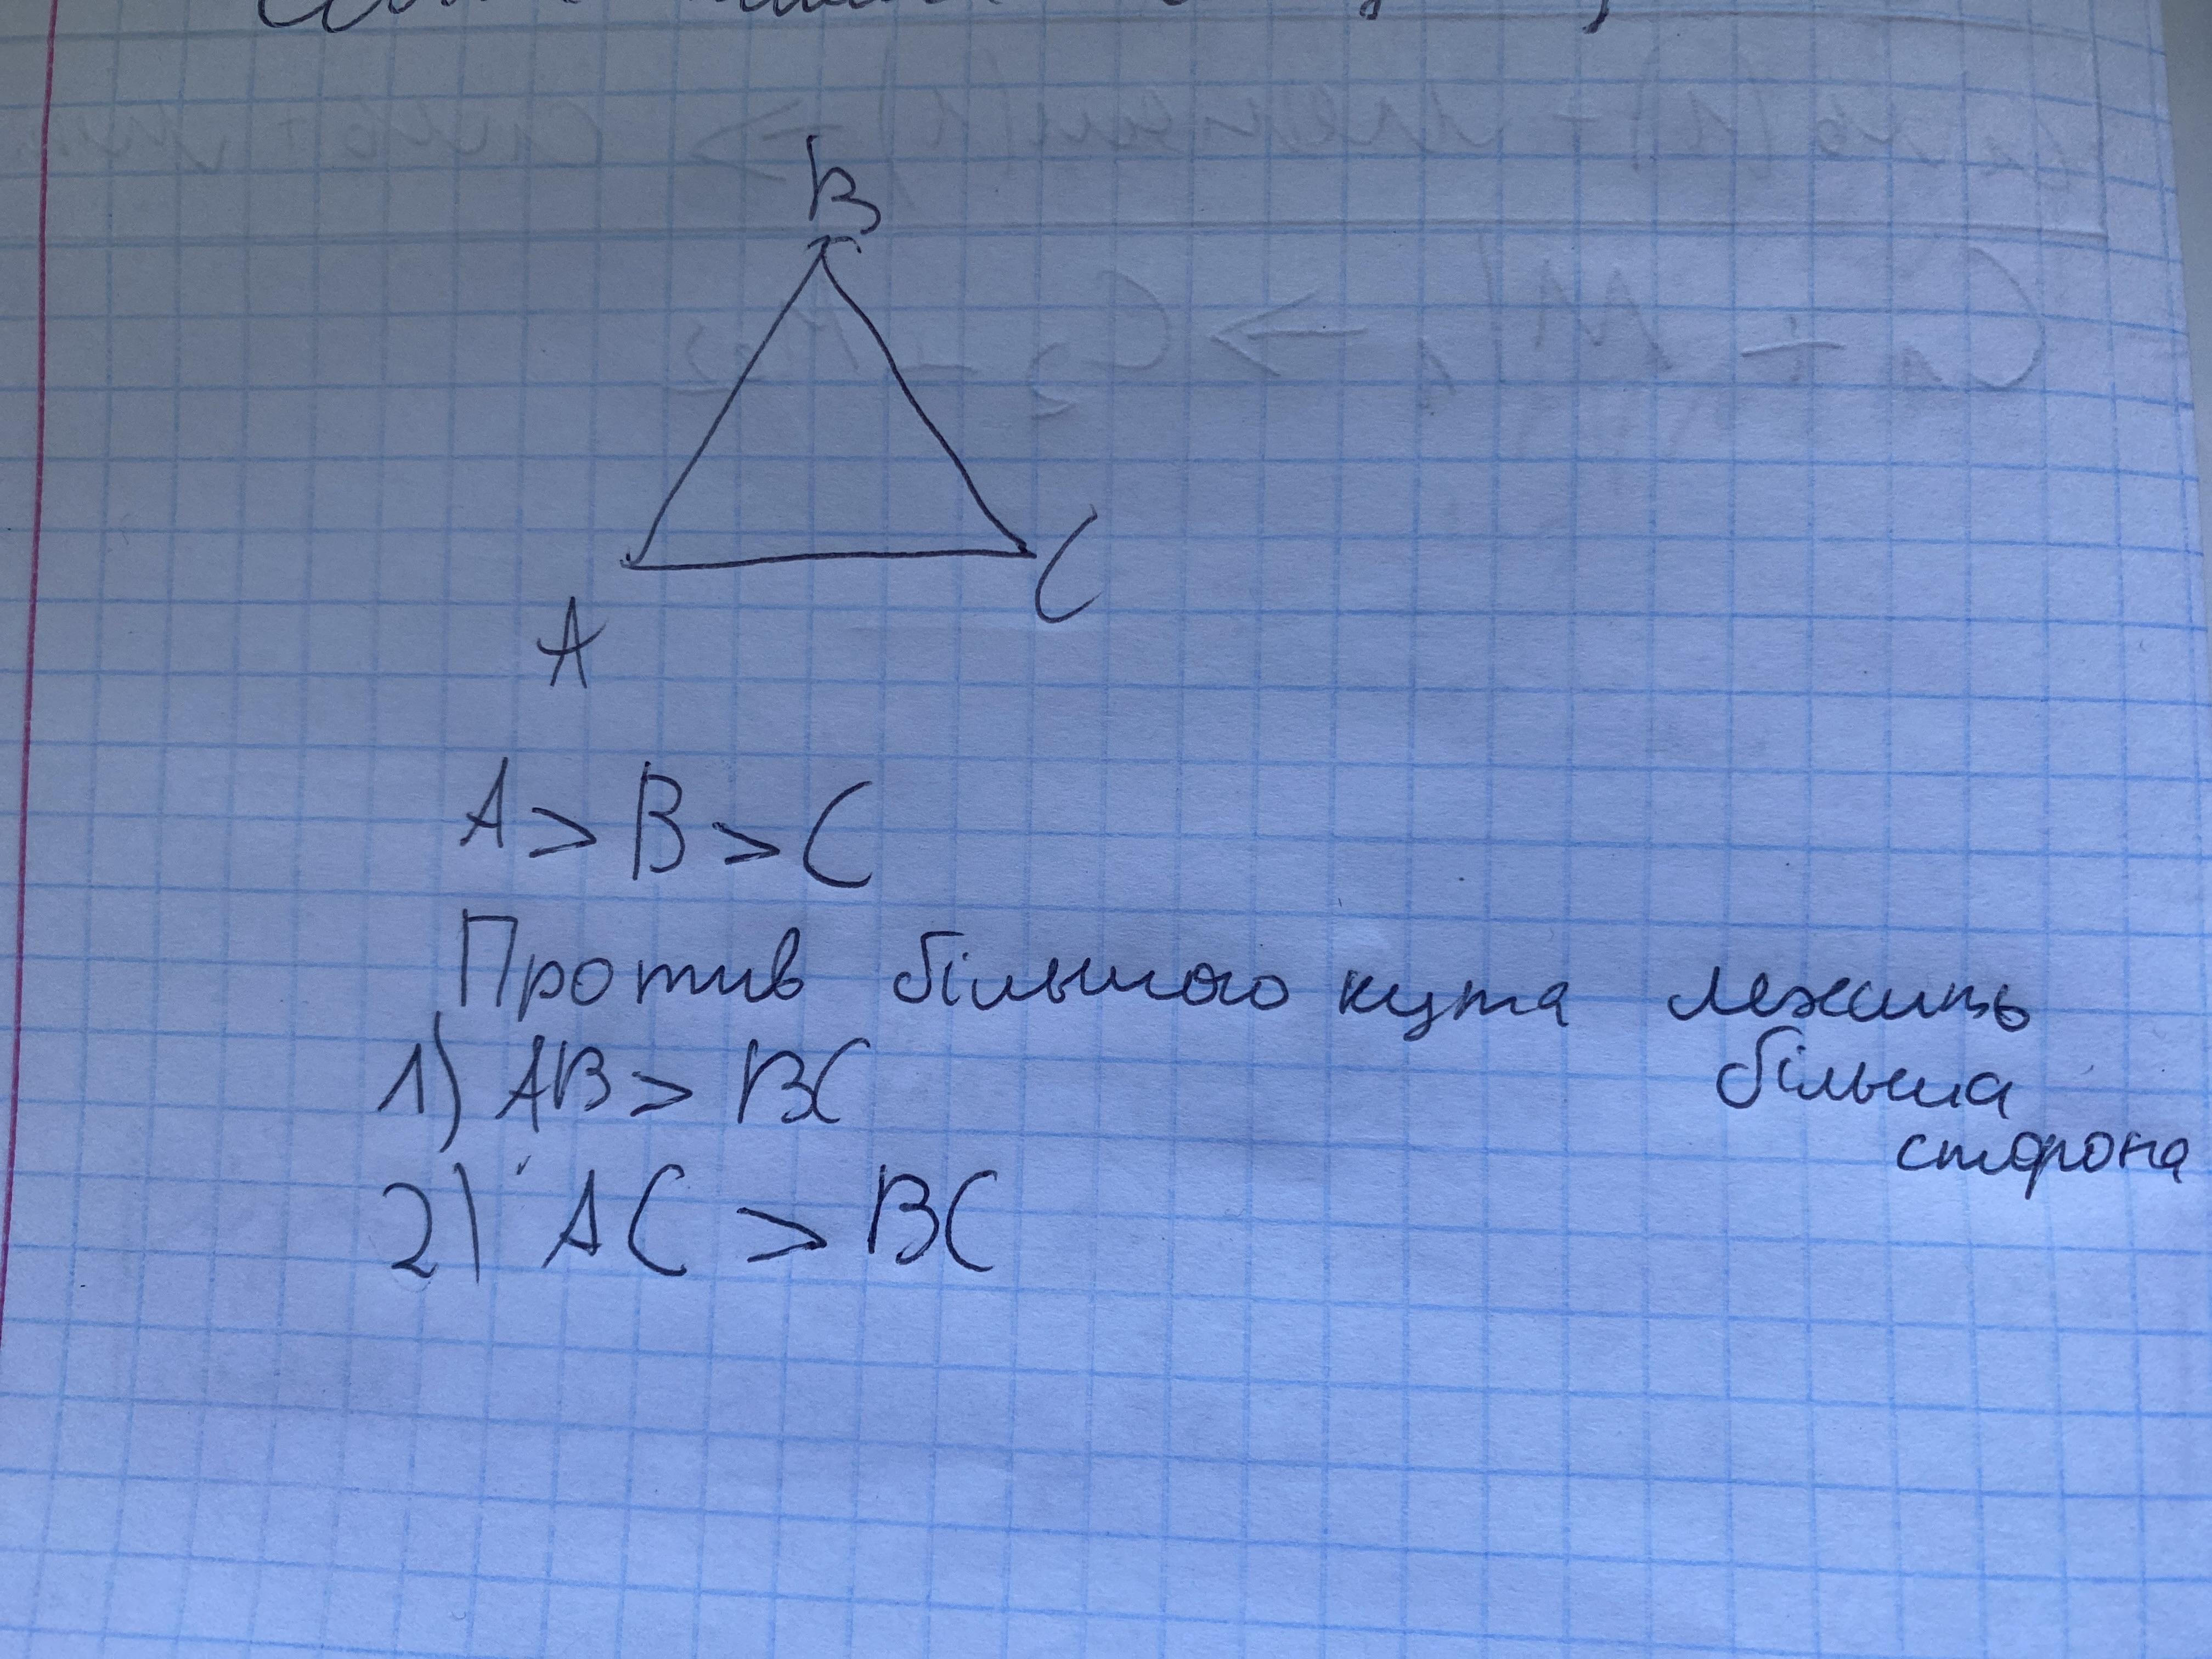 B
A
C
A > B > C
Против більшого кута лежить
більша
сторона
1) AB > BC
2) AC > BC